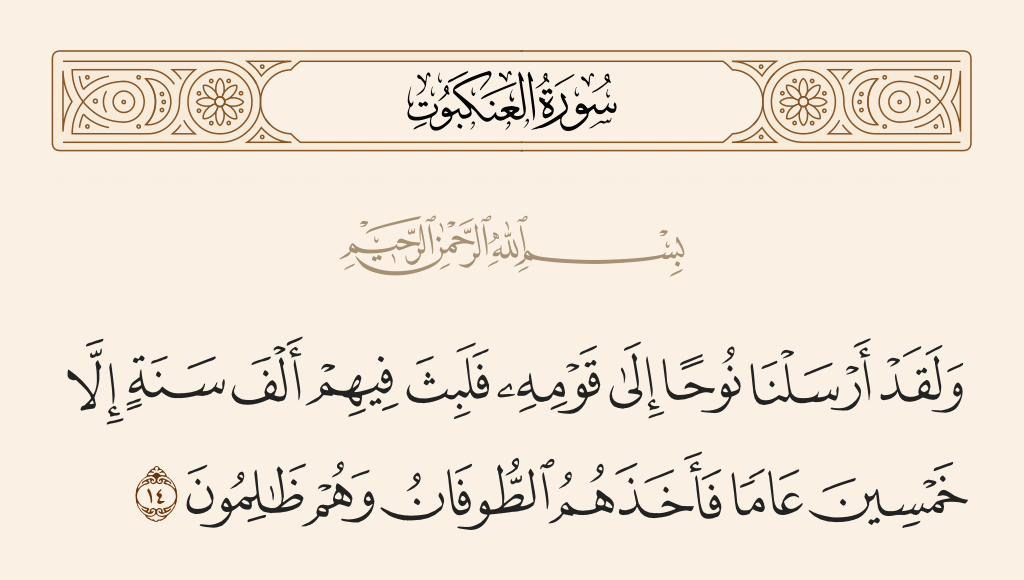 سُورَةُ العَنكَبُوتِ
بِسْمِ ٱللَّهِ ٱلرَّحْمَٰنِ ٱلرَّحِيمِ
وَلَقَدْ أَرْسَلْنَا نُوحًا إِلَىٰ قَوْمِهِۦ فَلَبِثَ فِيهِمْ أَلْفَ سَنَةٍ إِلَّا
خَمْسِينَ عَامًا فَأَخَذَهُمُ ٱلطُّوفَانُ وَهُمْ ظَٰلِمُونَ ١٤